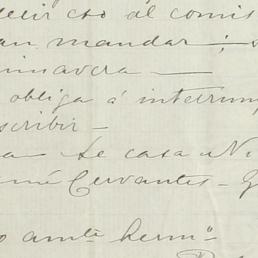 decir eso al comis
an mandar ; s
imavera —
obliga á interrum
scribir —
a Se casa Ni
mé Cervantes - G
o amte. herno.